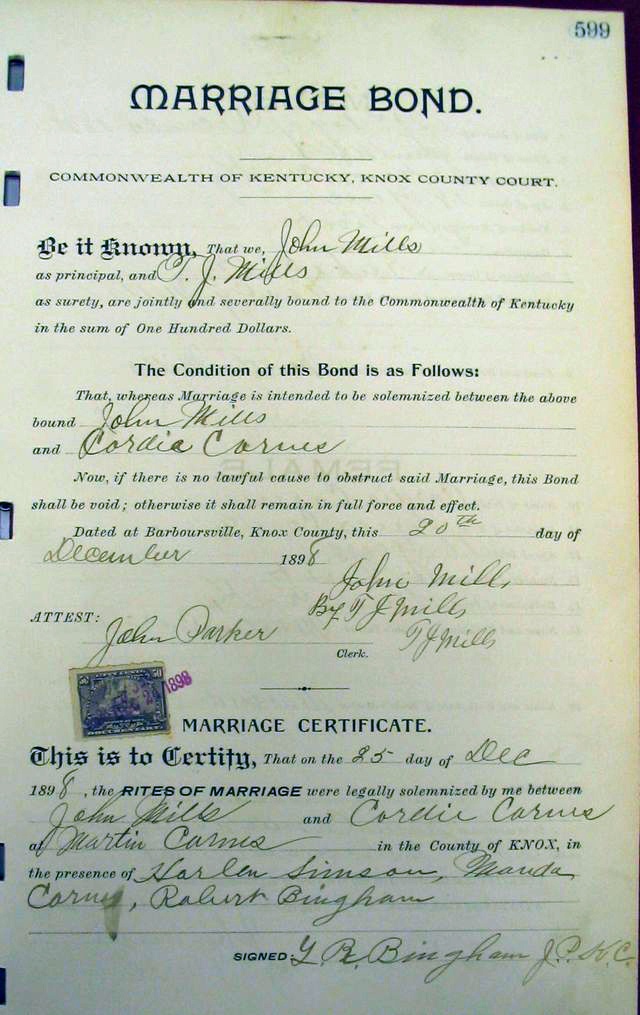 599
MARRIAGE BOND.
COMMONWEALTH OF KENTUCKY, KNOX COUNTY COURT.
Be it Known, That we, John Mills
as principal, and T. J. Mills
as surety, are jointly and severally bound to the Commonwealth of Kentucky
in the sum of One Hundred Dollars.
The Condition of this Bond is as Follows:
That, whereas Marriage is intended to be solemnized between the above
bound John Mills
and Cordie Carnes
Now, if there is no lawful cause to obstruct said Marriage, this Bond
shall be void; otherwise it shall remain in full force and effect.
Dated at Barboursville, Knox County, this 20th day of
December 1898
John Mills
By T J Mills
ATTEST:
John Parker T J Mills
Clerk.
1898
MARRIAGE CERTIFICATE.
This is to Certify, That on the 25 day of Dec
1898, the RITES OF MARRIAGE were legally solemnized by me between
John Mills and Cordie Carnes
at Martin Carnes in the County of KNOX, in
the presence of Harlen Simson, Manda
Carnes, Robert Bingham
SIGNED: Bingham J. P. K. C.